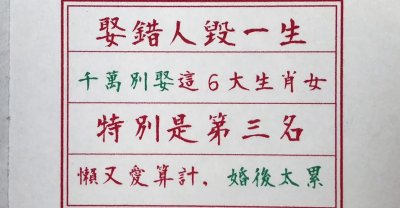 娶錯人毀一生
千萬別娶這6大生肖女
特別是第三名
懶又愛算計，婚後太累